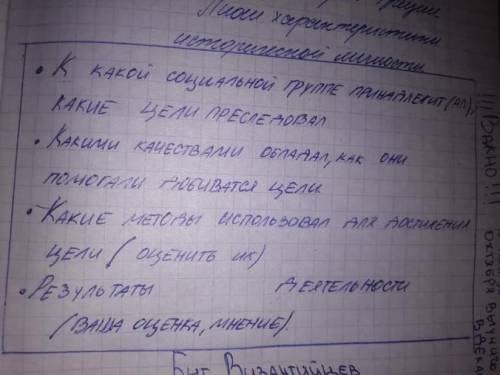 План характеристики
исторической личности
• К какой социальной группе принадлежит(ал),
какие цели преследовал
• Какими качествами обладал, как они
помогали добиватся цели
• Какие методы использовал для достижения
цели (оценить их)
• Результаты деятельности
(ваша оценка, мнение).
Быт Византийцев